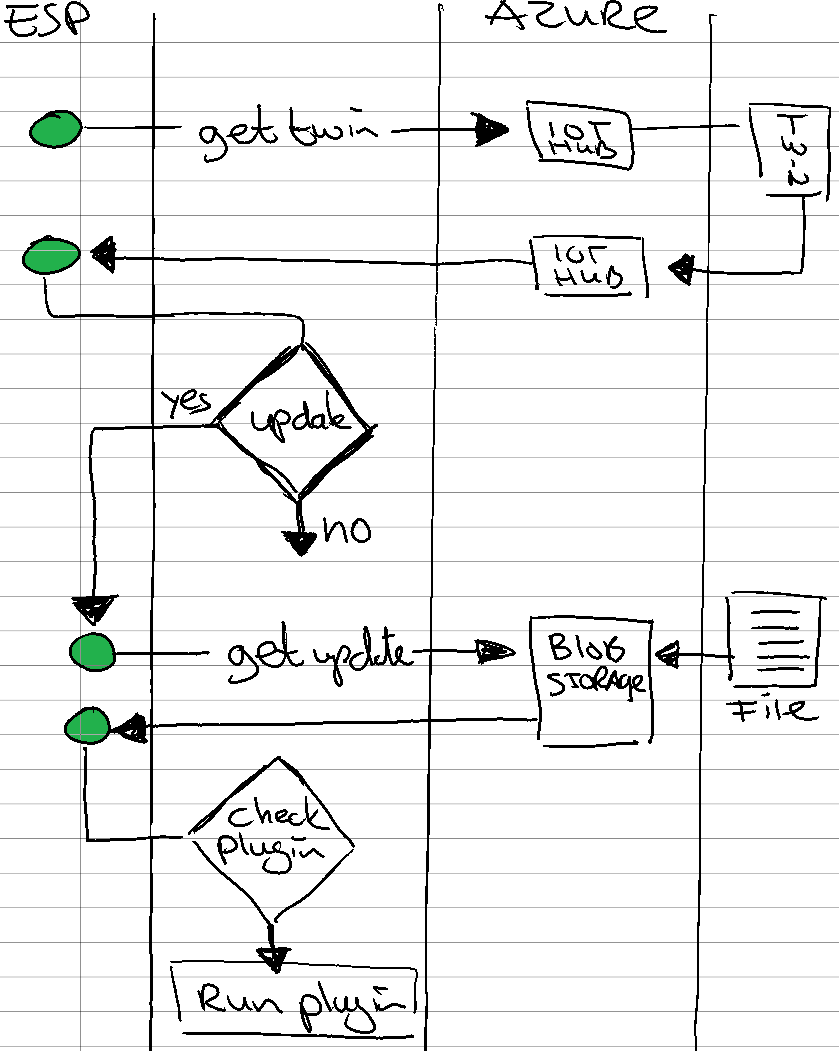 ESP
AZURE
get twin
IOT
HUB
T-3-2
IOT
HUB
yes
update
no
get update
BLOB
STORAGE
File
check
plugin
Run plugin